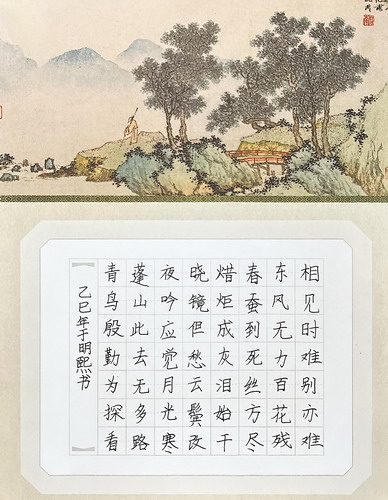 相见时难别亦难
东风无力百花残
春蚕到死丝方尽
焟炬成灰泪始干
晓镜但愁云鬓改
夜吟应觉月光寒
蓬山此去无多路
青鸟殷勤为探看
乙巳年于明熙书